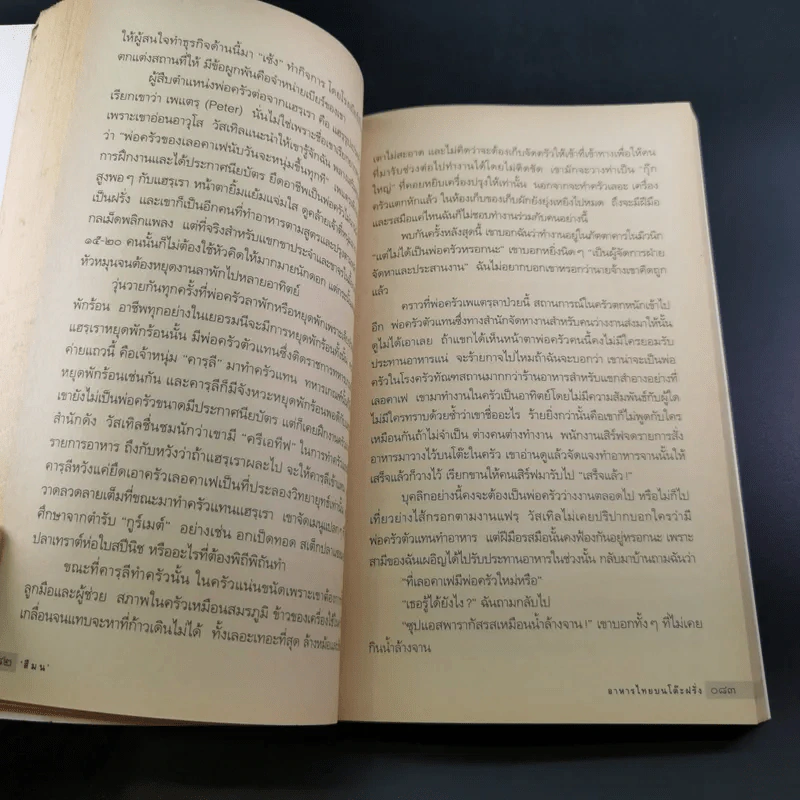 ให้ผู้สนใจทำธุรกิจด้านนี้มา "เซ้ง" ทำกิจการ
ตกแต่งสถานที่ให้ มีข้อผูกพันคือจำหน่ายเบียร์ของเขา
ผู้สืบตำแหน่งพ่อครัวต่อจากแฮรุเรา คือ
เรียกเขาว่า เพแตรุ (Peter) นั่นไม่ใช่เพราะชื่อเขาเรียก
เพราะเขาอ่อนอาวุโส วัสเทิลแนะนำให้เขารู้จักฉัน
ว่า "พ่อครัวของเลอคาเฟ่นับวันจะหนุ่มขึ้นทุกที"
การฝึกงานและได้ประกาศนียบัตร ยึดอาชีพเป็นพ่อครัว
สูงพอๆ กับแฮรุเรา หน้าตายิ้มแย้มแจ่มใส ดูคล้าย
เป็นฝรั่ง และเขาก็เป็นอีกคนที่ทำอาหารตามสูตรและปรุง
กลเม็ดพลิกแพลง แต่ที่จริงสำหรับแขกขาประจำและขาจร
๑๕-๒๐ คนนั้นก็ไม่ต้องใช้หัวคิดให้มากมายนักดอก
หัวหมุนจนต้องหยุดงานลาพักไปหลายอาทิตย์
วุ่นวายกันทุกครั้งที่พ่อครัวลาพักหรือหยุดพักเพราะ
พักร้อน อาชีพทุกอย่างในเยอรมนีจะมีการหยุดพักร้อน
แฮรุเราหยุดพักร้อนนั้น มีพ่อครัวตัวแทนซึ่งติดราชการทหาร
ค่ายแถวนี้ คือเจ้าหนุ่ม "คารุลี" มาทำครัวแทน
หยุดพักร้อนเช่นกัน และคารุลีก็มีจังหวะหยุดพักร้อน
เขายังไม่เป็นพ่อครัวขนาดมีประกาศนียบัตร แต่ก็เคยฝึกงาน
สำนักดัง วัสเทิลชื่นชมนักว่าเขามี "ครีเอทิฟ" ในการทำครัว
รายการอาหาร ถึงกับหวังว่าถ้าแฮรุเราผละไป จะให้คารุลี
คารุลีหวังแค่ยึดเอาครัวเลอคาเฟ่เป็นที่ประลองวิทยายุทธ์เท่านั้น
วาดลวดลายเต็มที่ขณะมาทำครัวแทนแฮรุเรา เขาจัดเมนูแปลกๆ
ศึกษาจากตำรับ "กูร์เมต์" อย่างเช่น อกเป็ดทอด สเต็กปลา
ปลาเทราต์ห่อใบสปีนิช หรืออะไรที่ต้องพิถีพิถันทำ
ขณะที่คารุลีทำครัวนั้น ในครัวแน่นขนัดเพราะเขาต้องการ
ลูกมือและผู้ช่วย สภาพในครัวเหมือนสมรภูมิ ข้าวของเครื่องใช้
เกลื่อนจนแทบจะหาที่ก้าวเดินไม่ได้ ทั้งเลอะเทอะที่สุด ล้างหม้อและ
๘๒ 'ฮีมน'
เตาไม่สะอาด และไม่คิดว่าจะต้องเก็บจัดครัวให้เข้าที่เข้าทางเพื่อให้คน
ที่มารับช่วงต่อไปทำงานได้โดยไม่ติดขัด เขามักจะวางท่าเป็น "กุ๊ก
ใหญ่" ที่คอยหยิบเครื่องปรุงให้เท่านั้น นอกจากจะทำครัวเลอะ เครื่อง
ครัวแตกหักแล้ว ในห้องเก็บของเก็บผักยังยุ่งเหยิงไปหมด ถึงจะมีฝีมือ
และรสมือแค่ไหนฉันก็ไม่ชอบทำงานร่วมกับคนอย่างนี้
พบกันครั้งหลังสุดนี้ เขาบอกฉันว่าทำงานอยู่ในภัตตาคารในมิวนิก
"แต่ไม่ได้เป็นพ่อครัวหรอกนะ" เขาบอกหยิ่งนิดๆ "เป็นผู้จัดการฝ่าย
จัดหาและประสานงาน" ฉันไม่อยากบอกเขาหรอกว่านายจ้างเขาคิดถูก
แล้ว
คราวที่พ่อครัวเพแตรุลาป่วยนี้ สถานการณ์ในครัวตกหนักเข้าไป
อีก พ่อครัวตัวแทนซึ่งทางสำนักจัดหางานสำหรับคนว่างงานส่งมาให้นั้น
ดูไม่ได้เอาเลย ถ้าแขกได้เห็นหน้าตาพ่อครัวคนนี้คงไม่มีใครยอมรับ
ประทานอาหารแน่ จะร้ายกาจไปไหมถ้าฉันจะบอกว่า เขาน่าจะเป็นพ่อ
ครัวในโรงครัวทัณฑสถานมากกว่าร้านอาหารสำหรับแขกสำอางอย่างที่
เลอคาเฟ่ เขามาทำงานในครัวเป็นอาทิตย์โดยไม่มีความสัมพันธ์กับผู้ใด
ไม่มีใครทราบด้วยซ้ำว่าเขาชื่ออะไร ร้ายยิ่งกว่านั้นคือเขาก็ไม่พูดกับใคร
เหมือนกันถ้าไม่จำเป็น ต่างคนต่างทำงาน พนักงานเสิร์ฟจดรายการสั่ง
อาหารมาวางไว้บนโต๊ะในครัว เขาอ่านดูแล้วจัดแจงทำอาหารจานนั้นให้
เสร็จแล้วก็วางไว้ เรียกขานให้คนเสิร์ฟมารับไป "เสร็จแล้ว!"
บุคลิกอย่างนี้คงจะต้องเป็นพ่อครัวว่างงานตลอดไป หรือไม่ก็ไป
เที่ยวย่างไส้กรอกตามงานแฟร์ วัสเทิลไม่เคยปริปากบอกใครว่ามี
พ่อครัวตัวแทนทำอาหาร แต่ฝีมือรสมือนั้นคงฟ้องกันอยู่หรอกนะ เพราะ
สามีของฉันเผอิญได้ไปรับประทานอาหารในช่วงนั้น กลับมาบ้านถามฉันว่า
"ที่เลอคาเฟ่มีพ่อครัวใหม่หรือ"
"เธอรู้ได้ยังไง?" ฉันถามกลับไป
"ซุปแอสพารากัสรสเหมือนน้ำล้างจาน!" เขาบอกทั้งๆ ที่ไม่เคย
กินน้ำล้างจาน
อาหารไทยบนโต๊ะฝรั่ง ๐๘๓